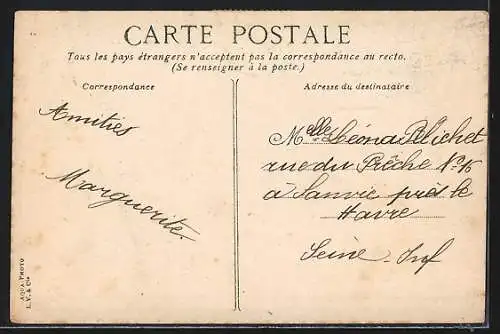 CARTE POSTALE
Tous les pays étrangers n'acceptent pas la correspondance au recto.
(Se renseigner à la poste.)
Correspondance
Adresse du destinataire
Amitiés
Marguerite.
Melle Léona Pelichet
rue du Prêche No 16
à Sanvic près le
Havre
Seine-Inf
AQUA PHOTO
L. V. & Cie